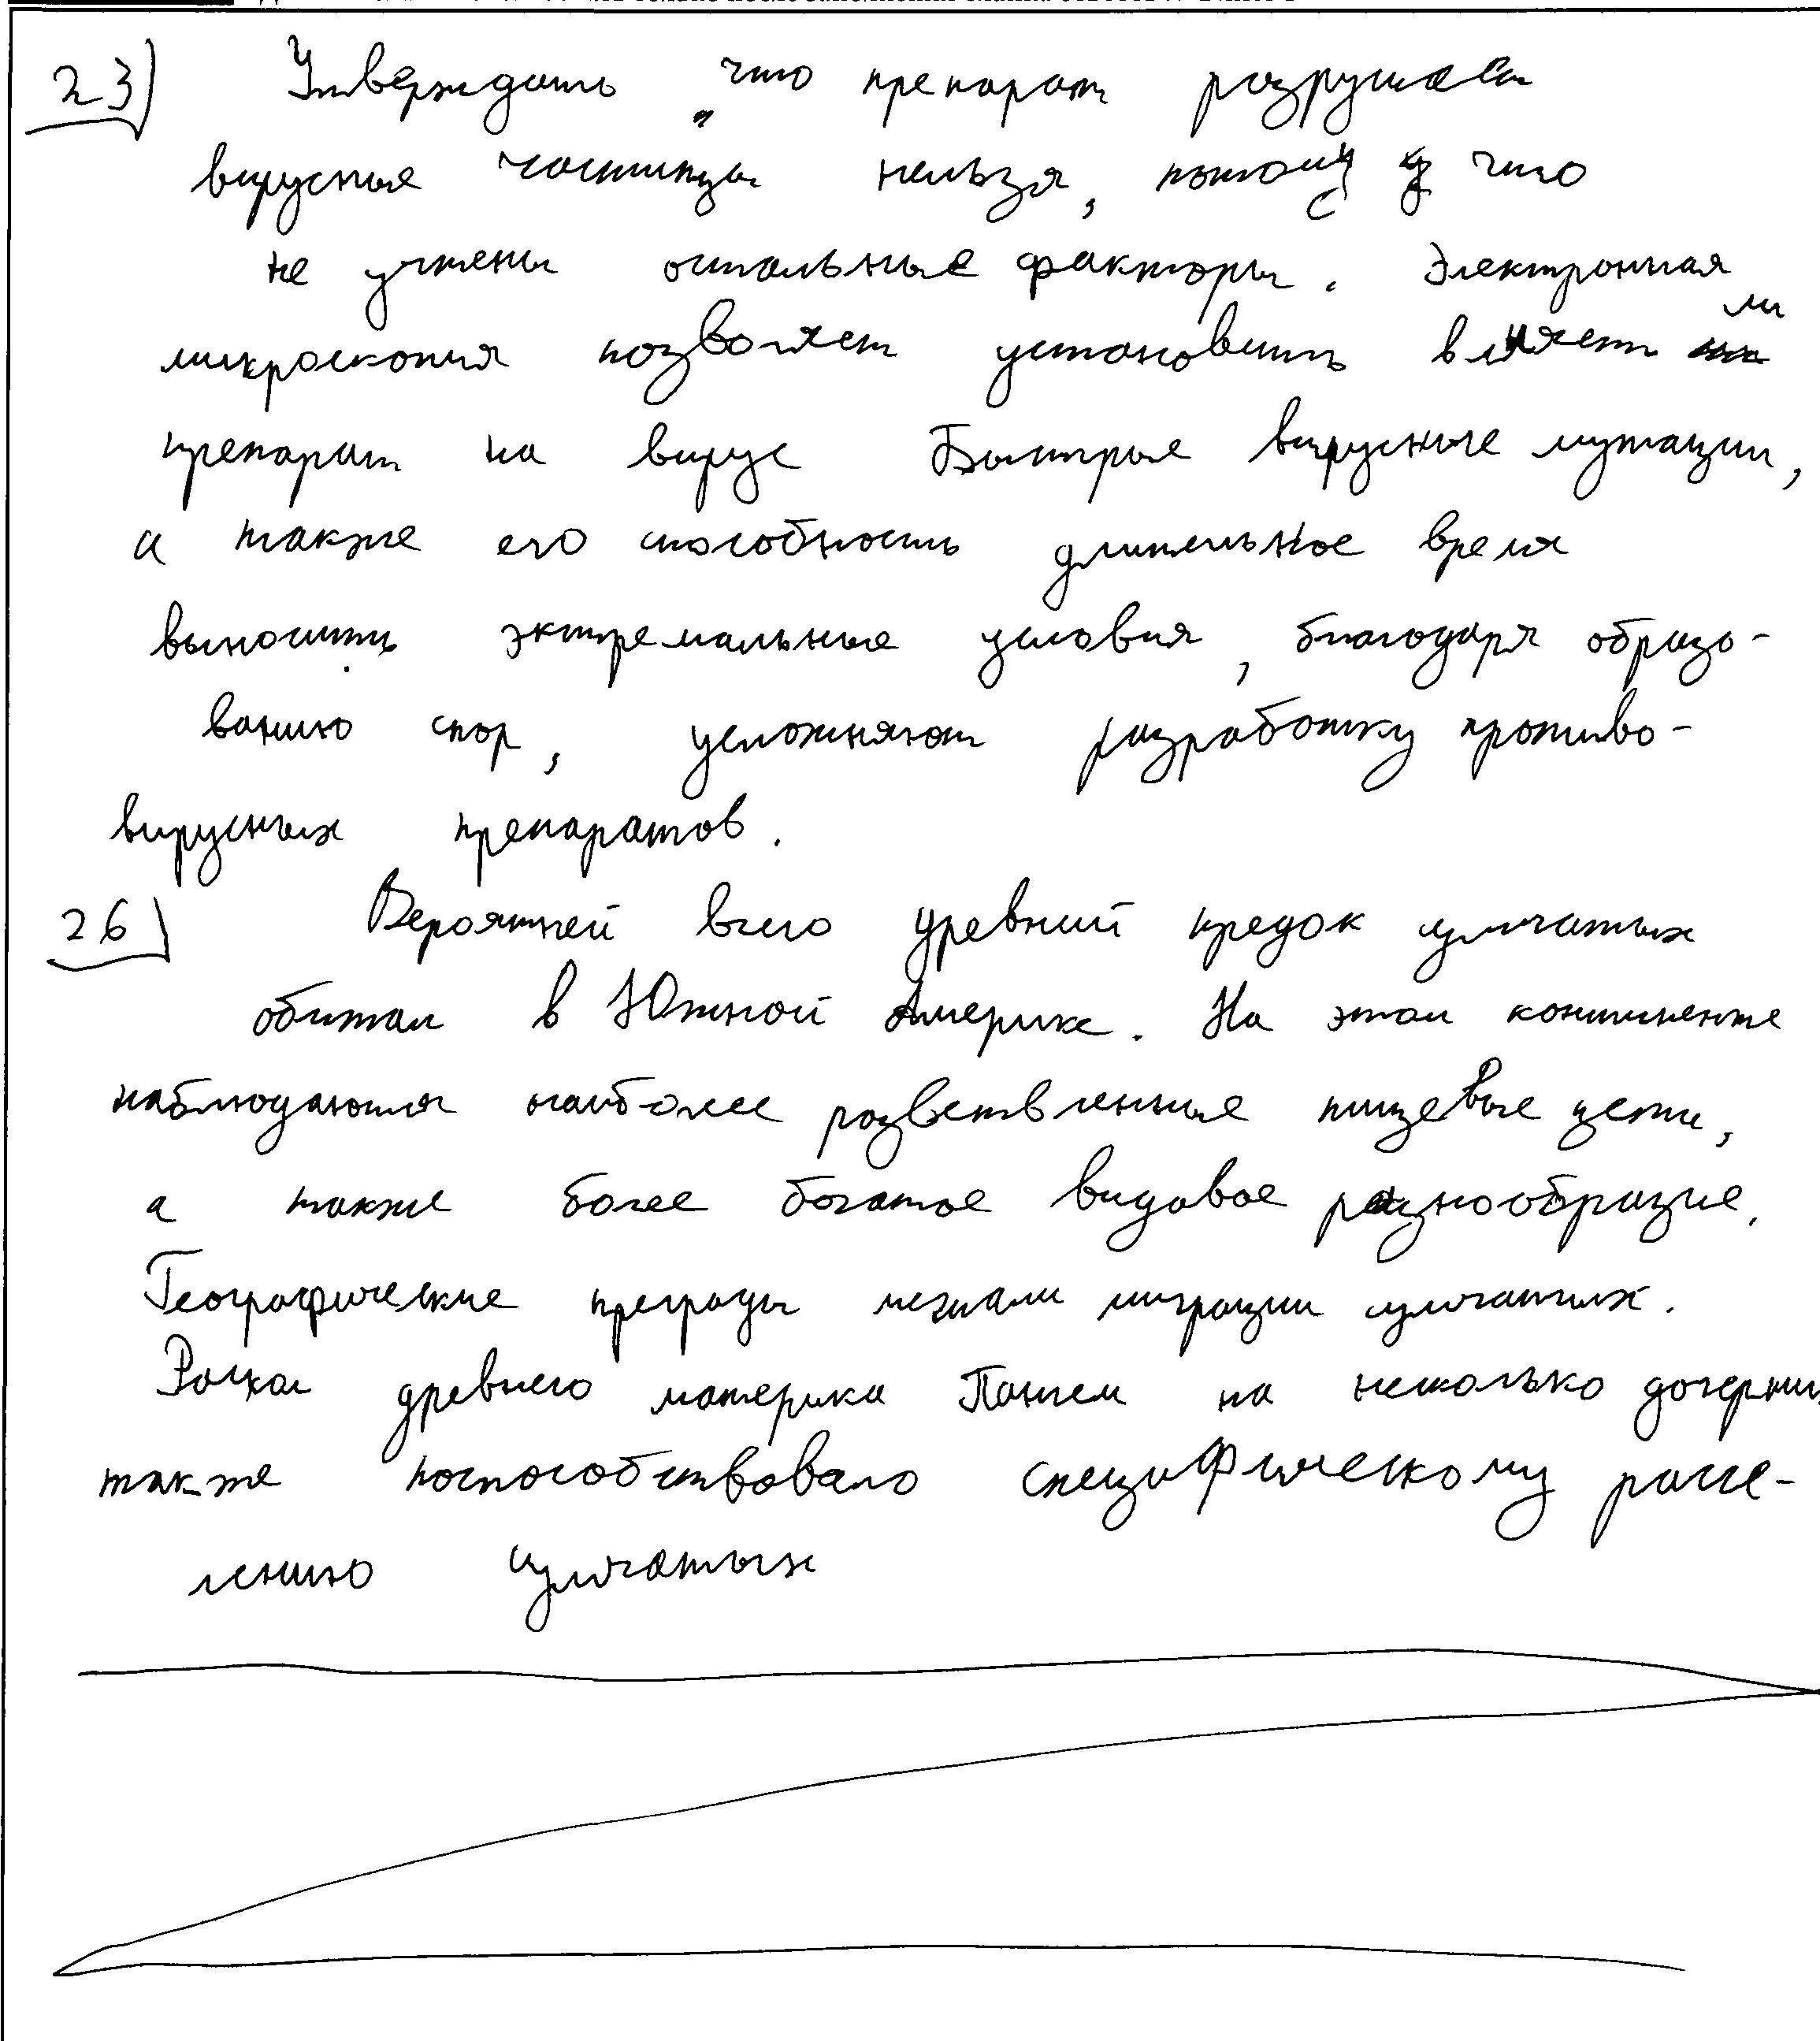 23) Утверждать, что препарат разрушает
вирусные частицы нельзя, потому что
не учтены остальные факторы. Электронная
микроскопия позволяет установить влияет ли
препарат на вирус Быстрые вирусные мутации,
а также его способность длительное время
выносить экстремальные условия, благодаря образо-
ванию спор, усложняют разработку противо-
вирусных препаратов.
26) Вероятней всего древний предок
обитал в Южной Америке. На этом континенте
наблюдаются наиболее разветвленные пищевые цепи,
а также более богатое видовое разнообразие.
Географические преграды мешали миграции
Раскол древнего материка Пангеи на несколько дочерних
также поспособствовало специфическому рассе-
лению